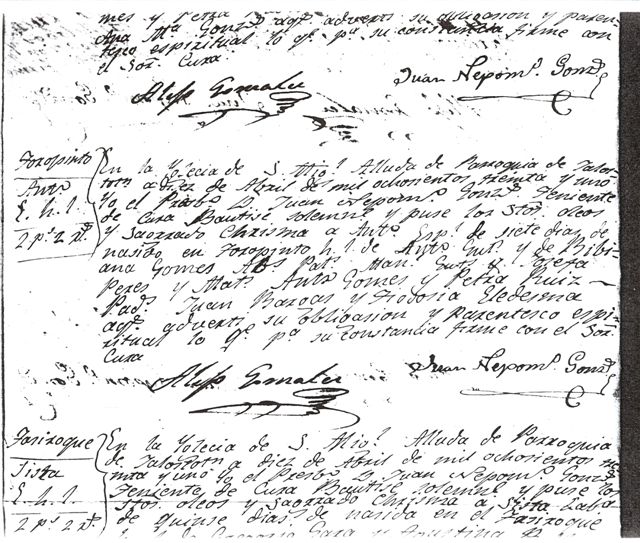 mes y Petra
Ana Ma. Gonz. aqs. advertí su obligasion y paren-
tesco espiritual lo qe. pa. su constancia firme con
el Sor. Cura
Juan Nepomo. Gonz.
Alejo Gonzalez
Toropinto
Anto.
E. h. l.
2 ps. 2 rs.
En la Yglecia de S. Migl. Alluda de Parroquia de
a dies de Abril de mil ochosientos treinta y uno
Yo el Presbo. D. Juan Nepomo. Gonz. Teniente
de Cura Bautisé solemne. y puse los Stos. oleos
y Sagrado Chrisma a Anto. Espl. de siete dias de
nasido en Toropinto h. l. de Anto. Guts. y de Bibi-
ana Gomes Abs. Pats. Man. Guts. y Josefa
Peres y Mats. Anto. Gomes y Petra Ruiz
Pads. Juan Bargas y Tiodoria Eledesma
aqs. advertí su obligasion y parentesco espi-
ritual lo qe. pa. su constancia firme con el Sor.
Cura
Juan Nepomo. Gonz.
Alejo Gonzalez
Tasiroque
Sista
E. h. l.
2 ps. 2 rs.
En la Yglecia de S. Migl. Alluda de Parroquia
de a diez de Abril de mil ochosientos tre-
inta y uno Yo el Presbo. D. Juan Nepomo. Gonz.
Teniente de Cura Bautisé solemne. y puse los
Stos. oleos y Sagrado Chrisma a Sista
de quinse dias de nasida en el Tasiroque